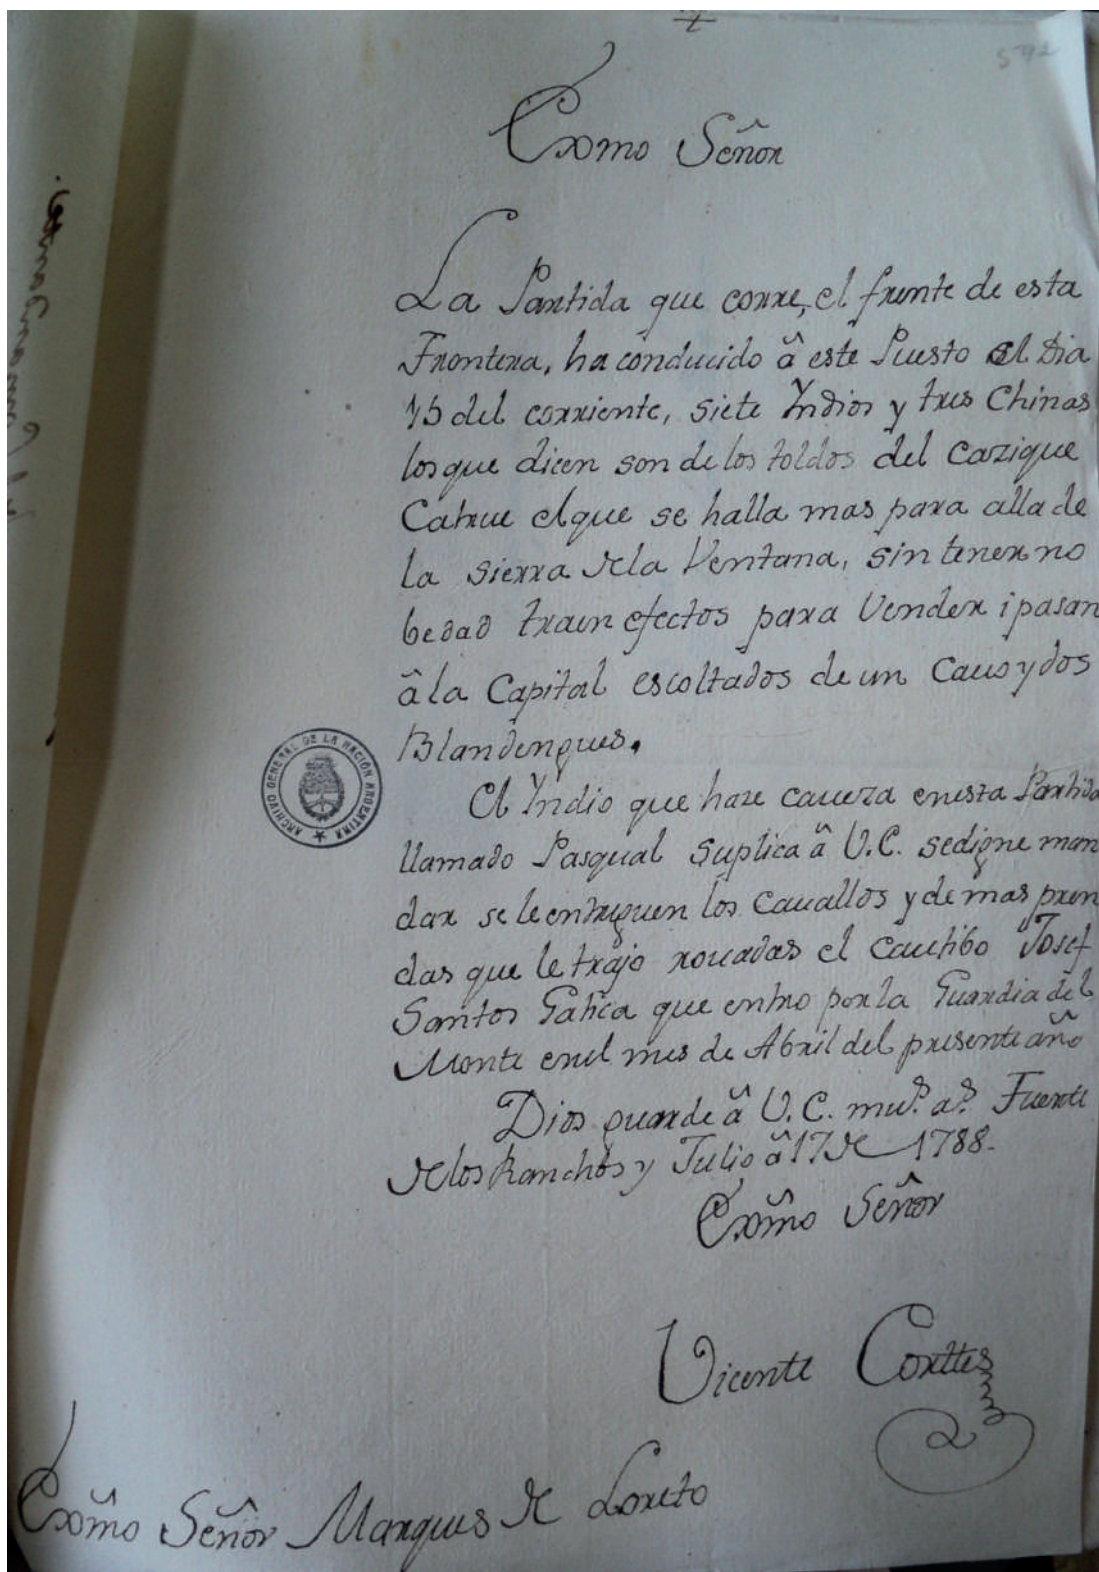 592
Exmo Señor
La Partida que corre, el frente de esta
Frontera, ha conducido â este Puesto el Dia
15 del corriente, siete Yndios y tres Chinas
los que dicen son de los toldos del Cazique
Catrue elque se halla mas para alla de
la Sierra dela Ventana, sin tener no
bedad traen efectos para Vender i pasan
â la Capital escoltados de un Cauo y dos
Blandengues.
El Yndio que haze caueza enesta Partida
llamado Pasqual Suplica â V.E. sedigne man
dar se le entreguen los Cauallos y demas pren
das que le trajo rouadas el Cautibo Josef
Santos Gatica que entro por la Guardia del
Monte enel mes de Abril del presente año
Dios guarde â V.E. mu.s a.s Fuerte
delos Ranchos y Julio â 17 de 1788.
Exmo Señor
Vicente Corttes
Exmo Señor Marques de Loreto
ARCHIVO GENERAL DE LA NACIÓN ARGENTINA